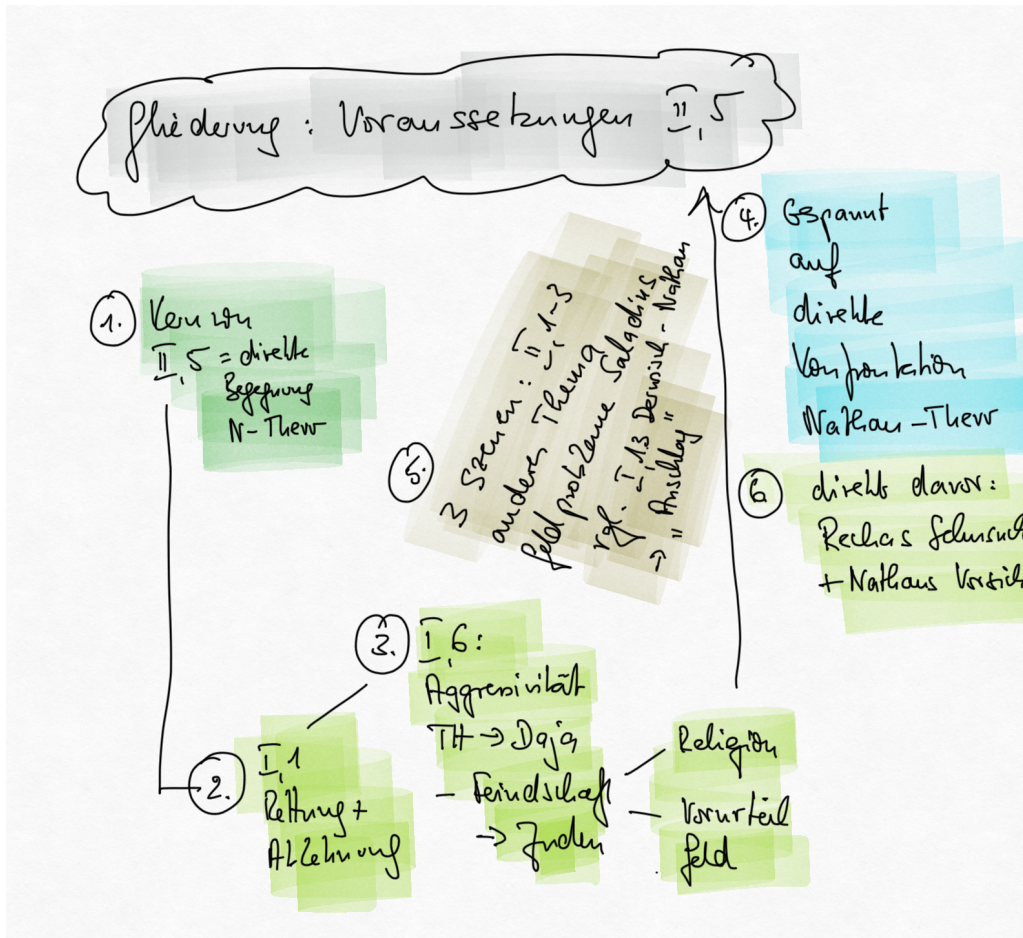 Gliederung: Voraussetzungen II,5
1. Kern von
II,5 = direkte
Begegnung
N-Therr
2. I,1
Rettung +
Ablehnung
3. I,6:
Aggressivität
TH → Daja
- Feindschaft
→ Juden
Religion
Vorurteil
Geld
4. Gespannt
auf
direkte
Konfrontation
Nathan-Therr
5. 3 Szenen: II,1-3
anderes Thema
Geldprobleme Saladins
vgl. I,3 Derwisch-Nathan
→ "Anschlag"
6 direkt davor:
Rechas Sehnsuch
+ Nathans Vorsich